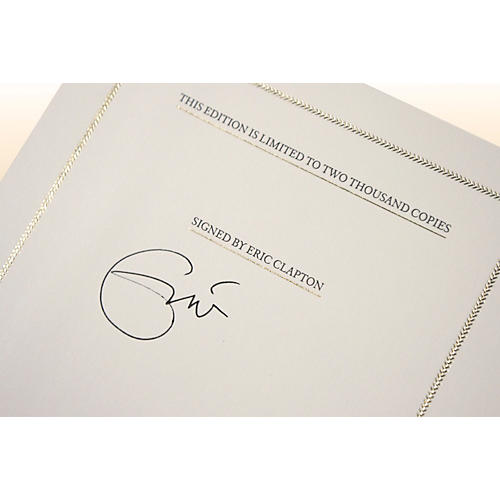 THIS EDITION IS LIMITED TO TWO THOUSAND COPIES
SIGNED BY ERIC CLAPTON
Eric